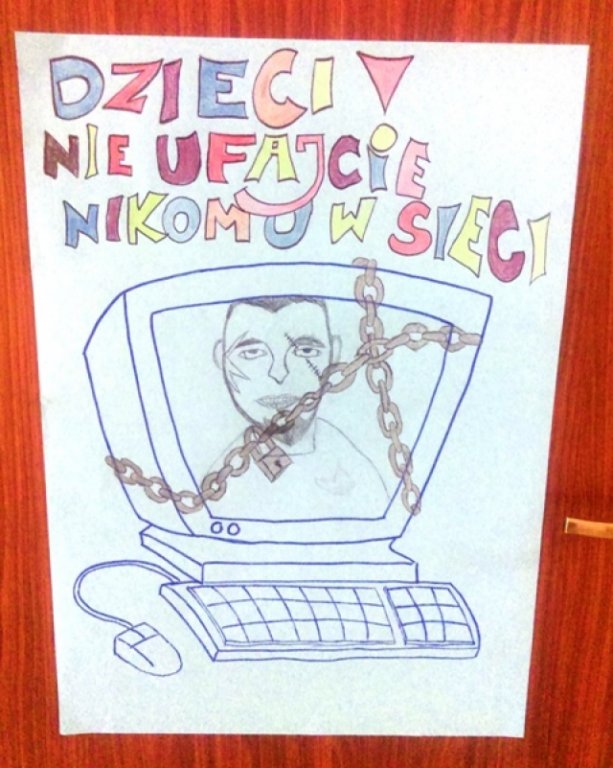 DZIECI!
NIE UFAJCIE
NIKOMU W SIECI